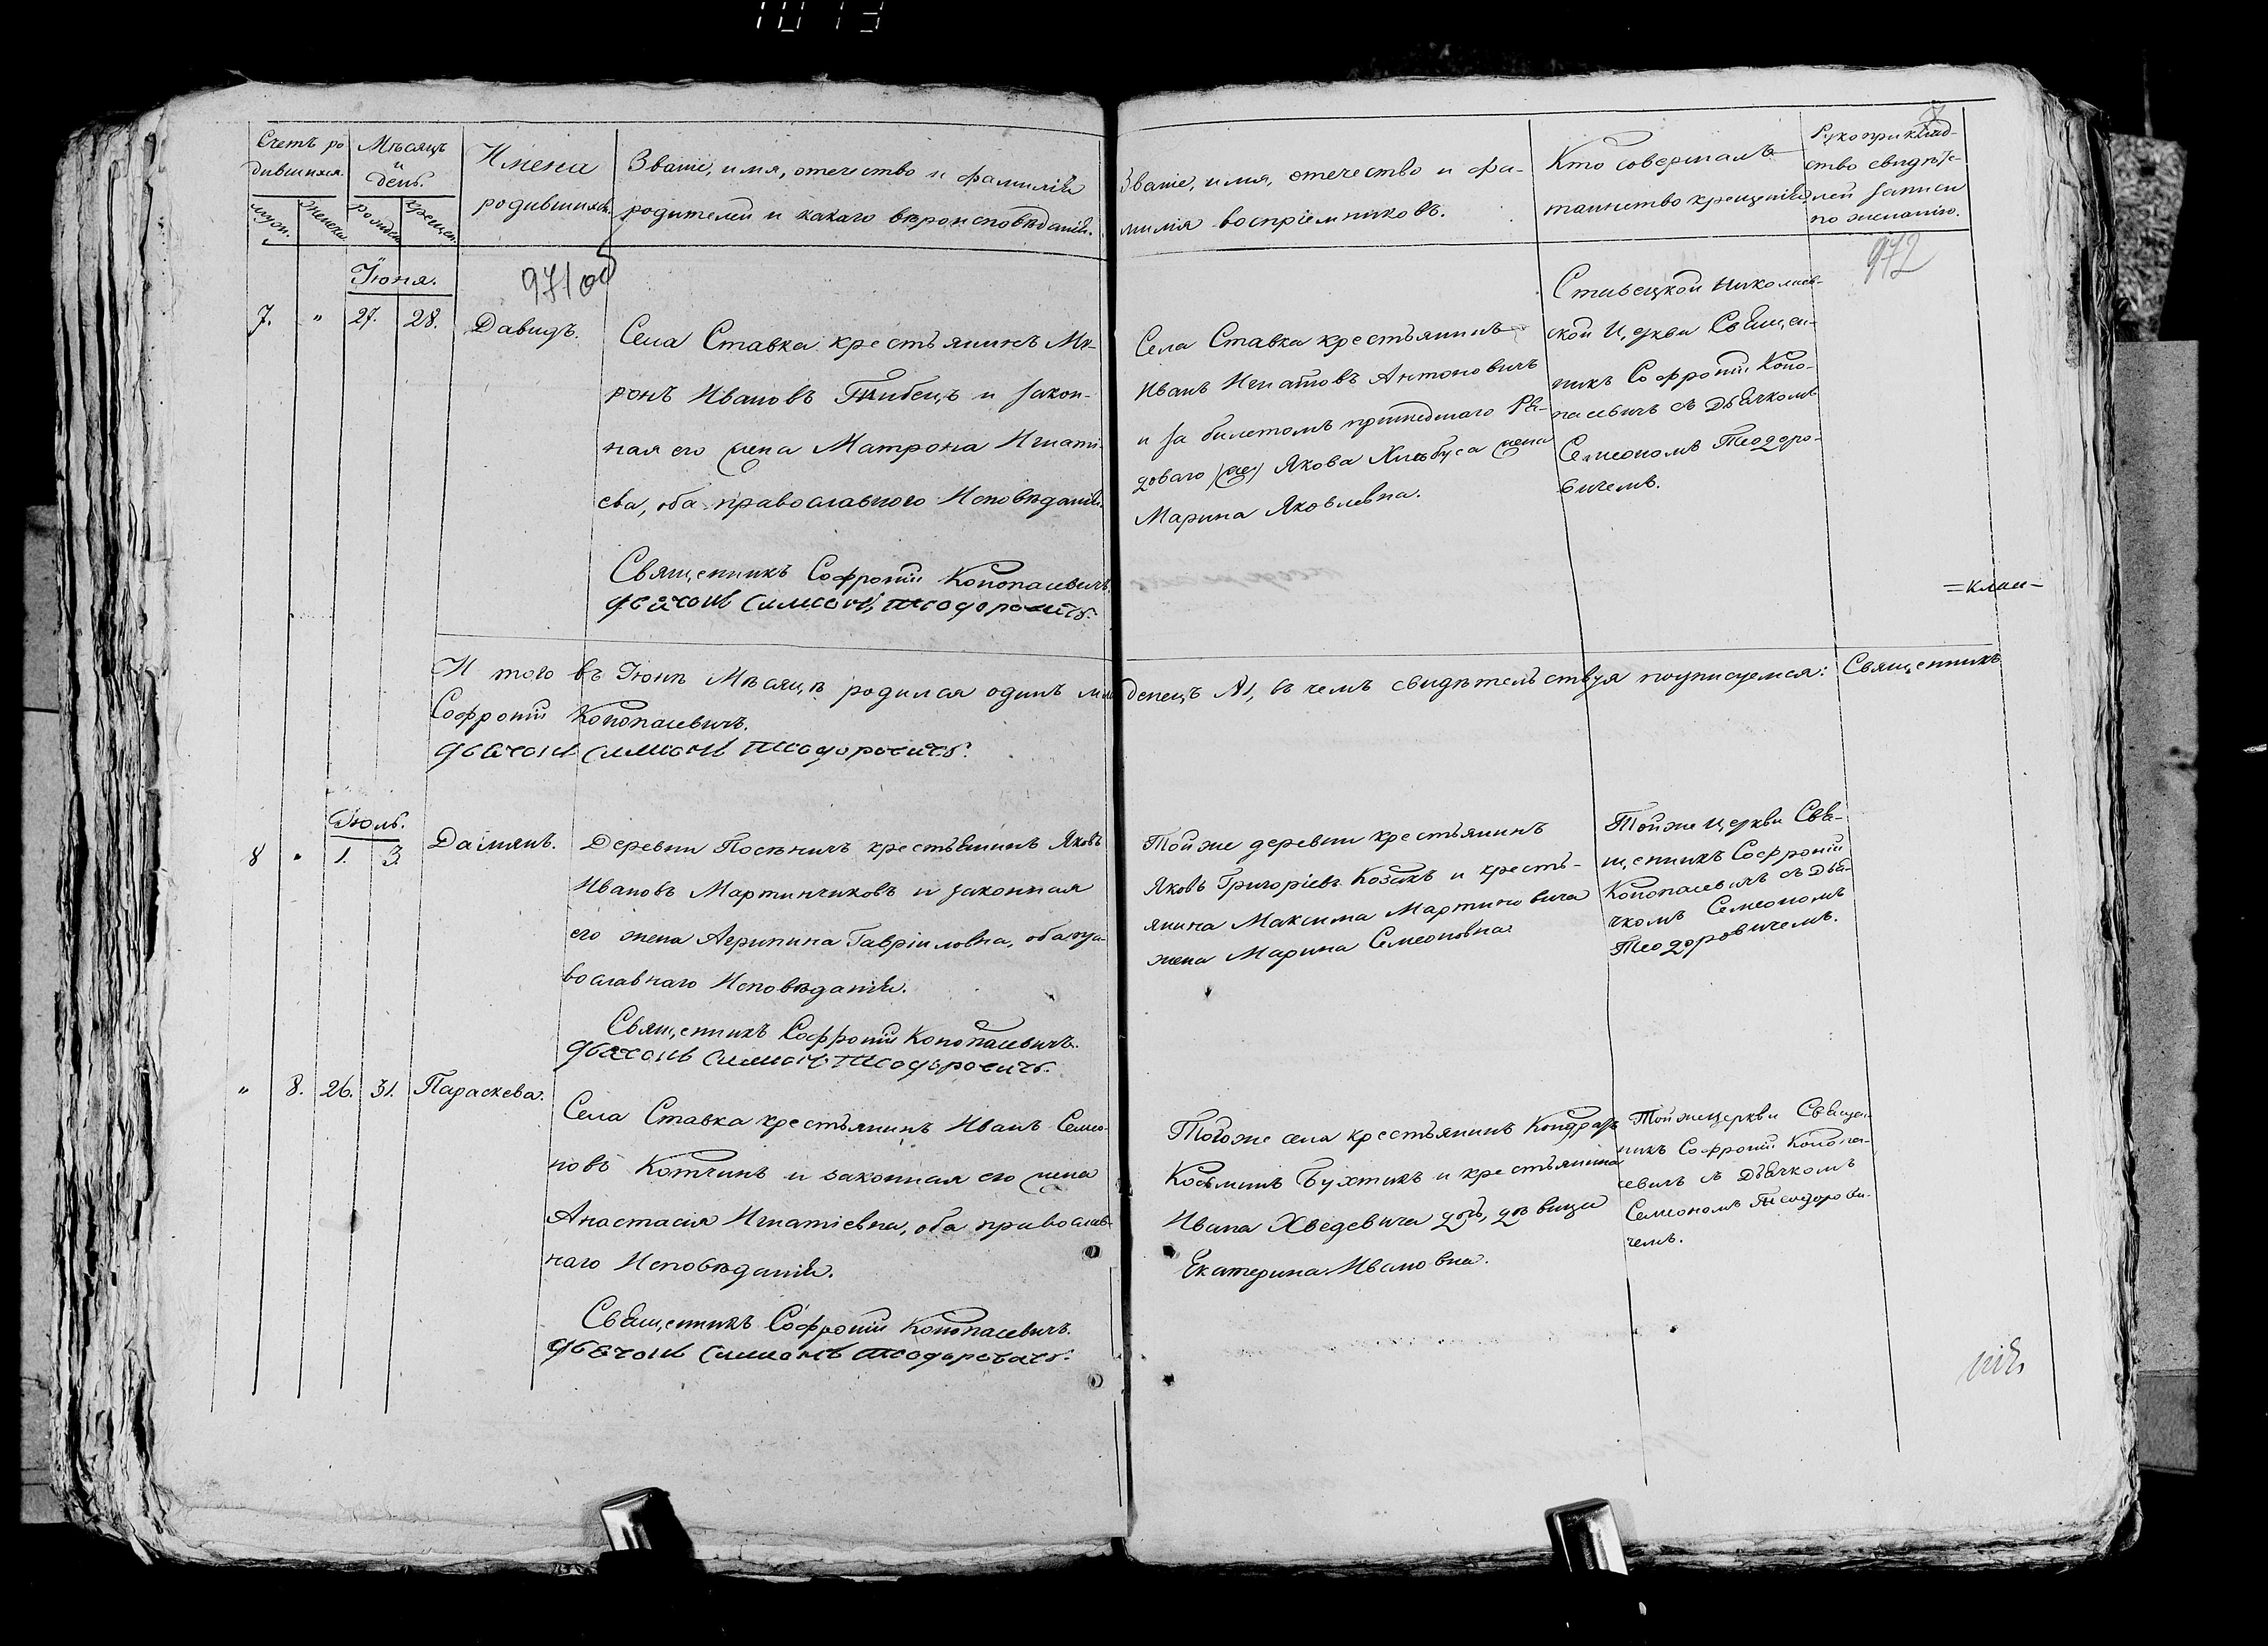 1013
Счетъ ро
дившихся.
Мѣсяцъ
и
день.
Имена
родившихся.
Званіе, имя, отечество и фамилія
родителей и какаго вѣроисповѣданія.
муж.
женска.
рожден.
крещен.
Званіе, имя, отечество и фа-
милія воспріемниковъ.
Кто совершалъ
таинство крещенія
Рукоприклад-
ство свидѣте-
лей записи
по желанію.
7
971 об
972
Іюня.
7. " 27. 28. Давидъ.
Села Ставка крестьянинъ Ми-
ронъ Ивановъ и закон-
ная его жена Матрона Игнаті-
ева, оба православного Исповѣданія.
Священникъ Софроній Конопасевичъ.
дьячокъ Симеонъ Теодоровичъ.
Села Ставка крестьянинъ
Иванъ Игнатовъ Антоновичъ
и за билетомъ пришедшаго Ря-
доваго Якова Хлѣбуса жена
Марина Яковлевна.
Ставецкой Николаев-
ской Церкви Священ-
никъ Софроній Коно-
пасевичъ съ Дьячкомъ
Семеономъ Теодоро-
вичемъ.
И того въ Іюнѣ Мѣсяцѣ родился одинъ мла
денецъ №1, въ чемъ свидѣтельствуя подписуемся: Священникъ
Софроній Конопасевичъ.
дьячокъ Симеонъ Теодоровичъ.
Іюль.
8 " 1. 3 Даміянъ.
Деревни Посѣничъ крестьянинъ Яковъ
Ивановъ Мартинчиковъ и законная
его жена Агрипина Гавріиловна, оба пра-
вославнаго Исповѣданія.
Священникъ Софроній Конопасевичъ.
дьячокъ Симеонъ Теодоровичъ.
Тойже деревни крестьянинъ
Яковъ Григоріевъ Козакъ и кресть-
янина Максима Мартиновича
жена Марина Семеоновна
Тойже Церкви Свя-
щенникъ Софроній
Конопасевичъ съ Дья-
чкомъ Семеономъ
Теодоровичемъ.
" 8. 26. 31. Параскева.
Села Ставка крестьянинъ Иванъ Семео-
новъ Котчинъ и законная его жена
Анастасія Игнатіевна, оба православ-
наго Исповѣданія.
Священникъ Софроній Конопасевичъ.
дьячокъ Симеонъ Теодоровичъ.
Тогоже села крестьянинъ Кондратъ
Козьминъ Бухтикъ и крестьянина
Ивана Хведевича дочь, дѣвица
Екатерина Ивановна.
Тойже Церкви Священ-
никъ Софроній Конопа-
севичъ съ Дьячкомъ
Семеономъ Теодорови-
чемъ.